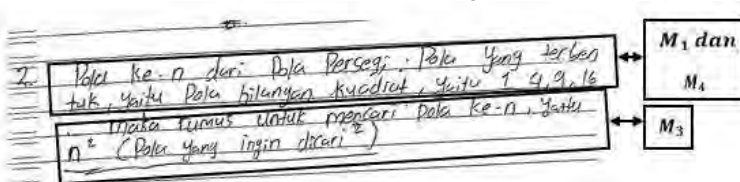 2. Pola ke-n dari Pola Persegi. Pola yang terben M₁ dan
tuk, yaitu Pola bilangan kuadrat, yaitu 1 4, 9, 16 M₄
maka rumus untuk mencari pola ke-n, yaitu M₃
n² (Pola yang ingin dicari²)